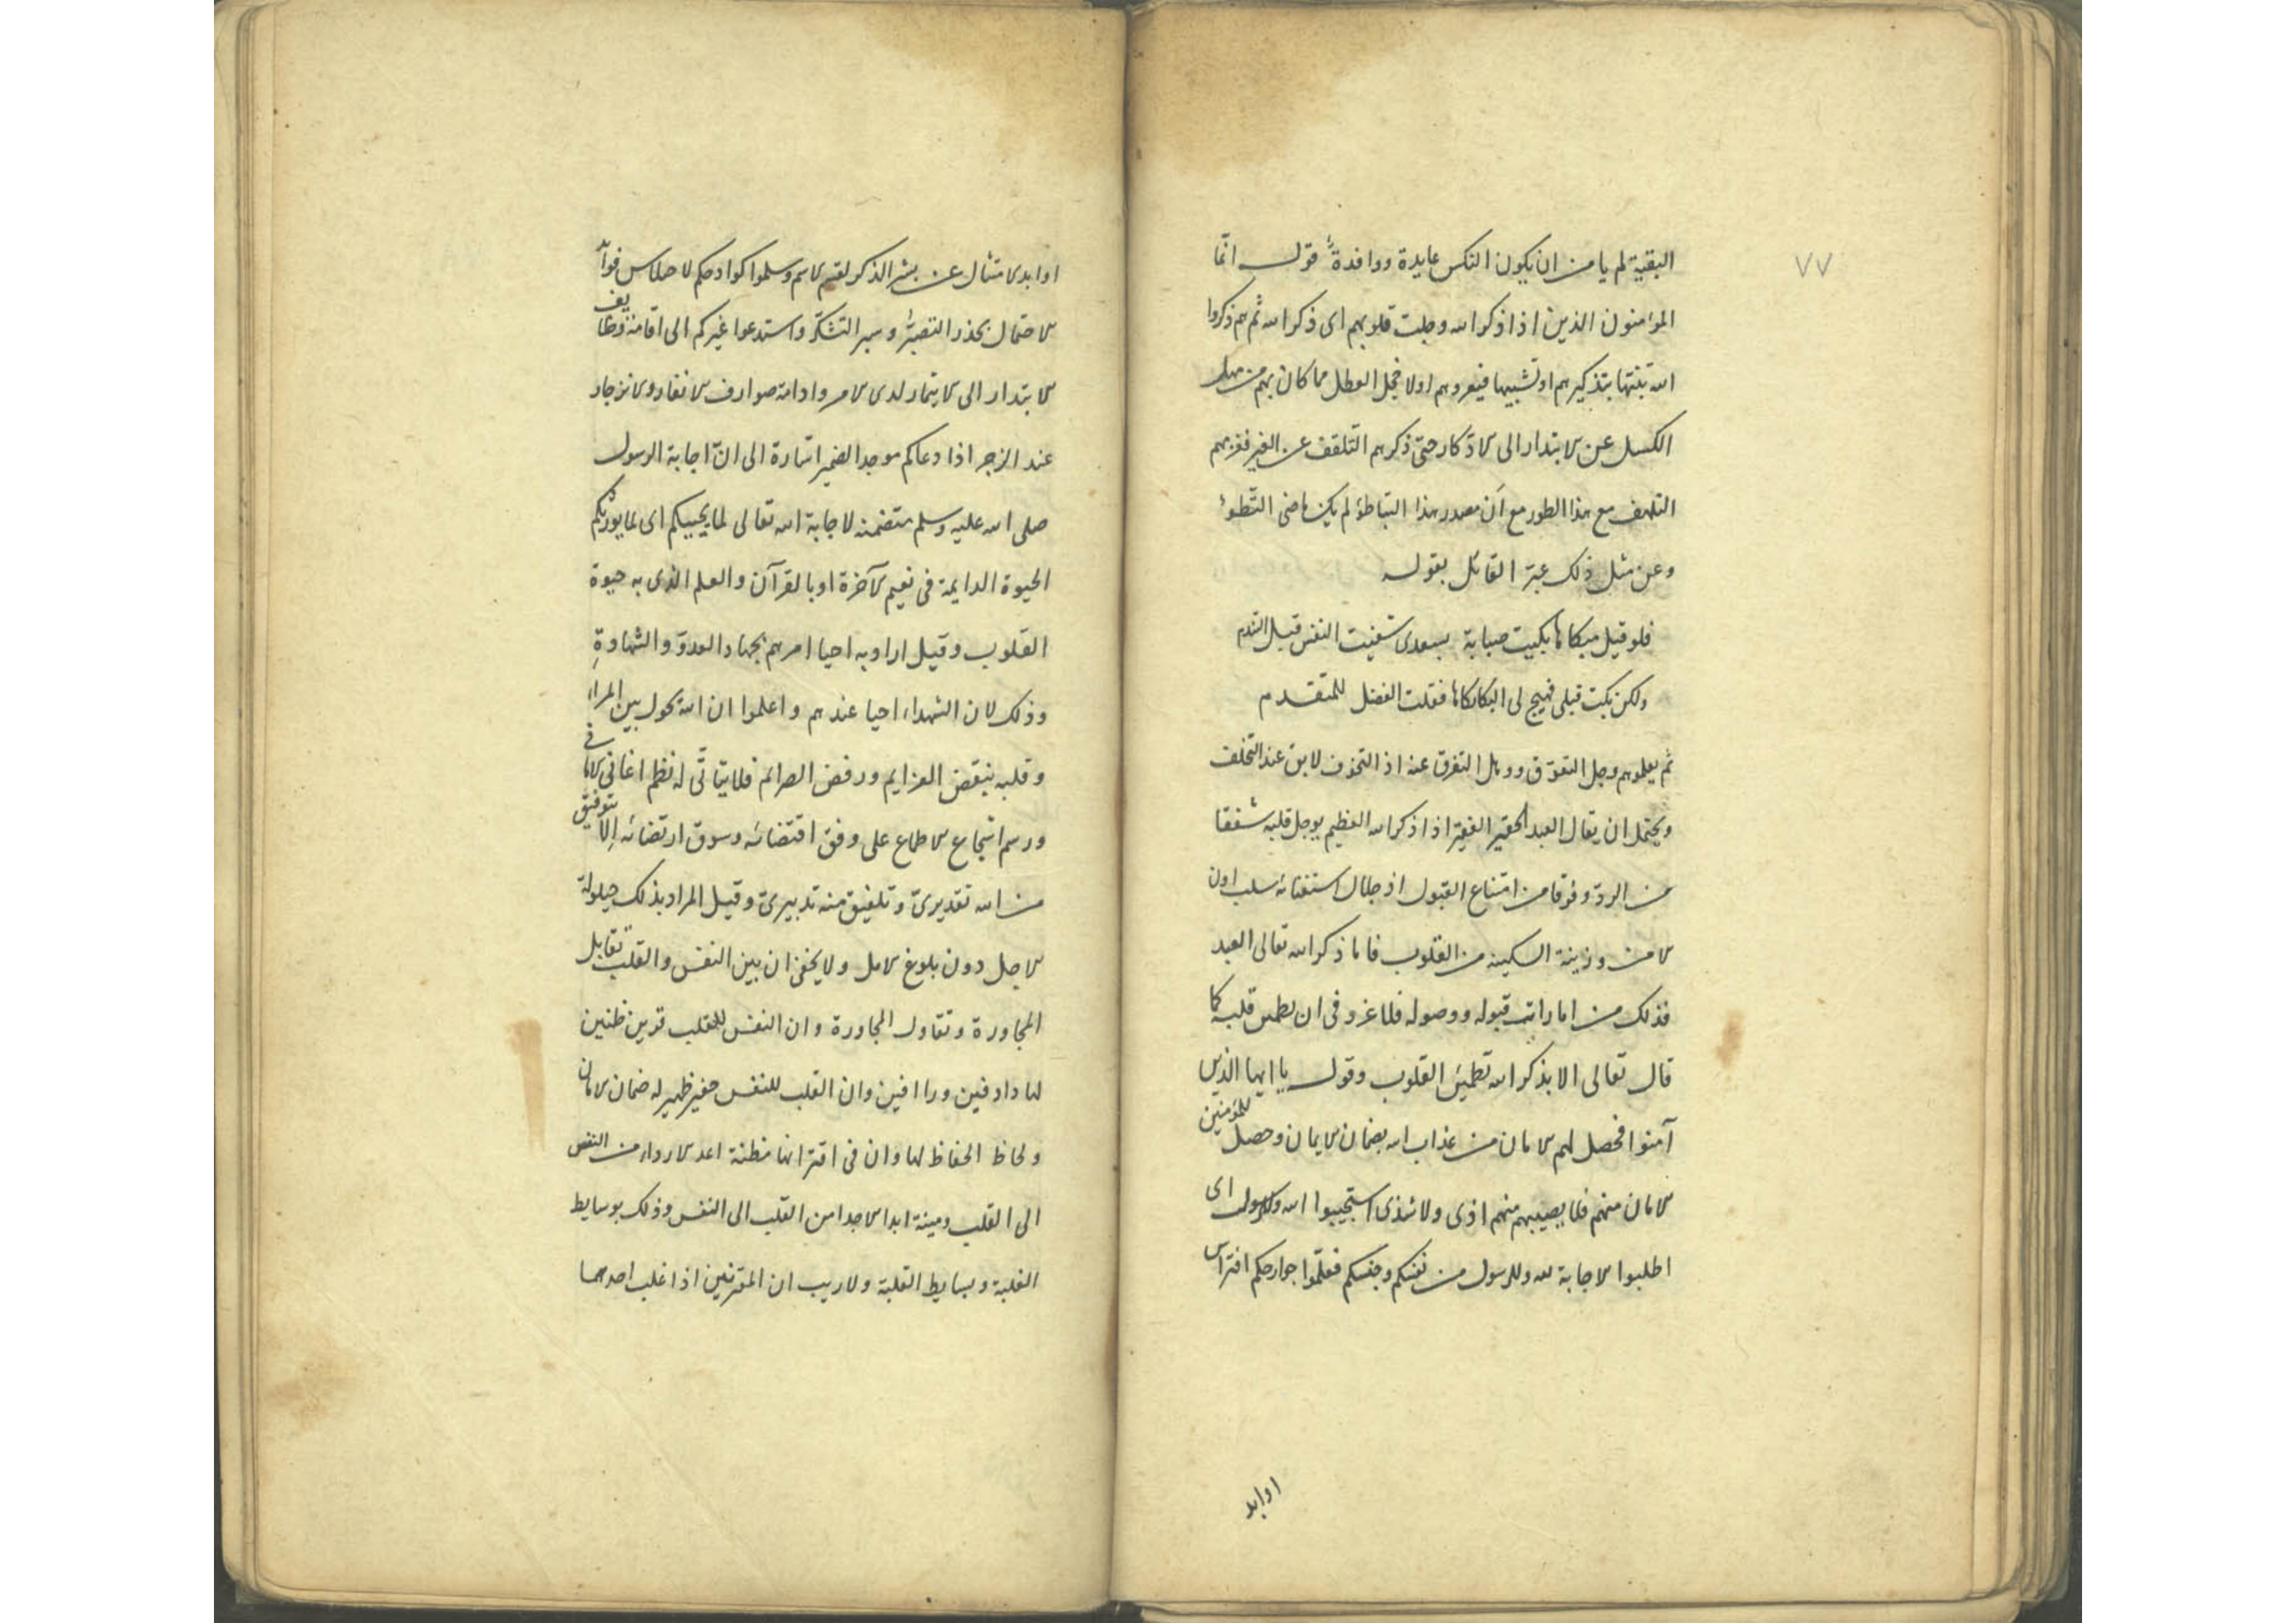 ٧٧
البقية لم يامن ان يكون النكس عايدة ووافدة قوله انّما
المؤمنون الذين اذا ذكر الله وجلت قلوبهم اى ذكر الله ثم هم ذكروا
الله بتذكيرهم اولا فخجل العطل مما كان بهم من
الكسل عن الابتدار الى الاذكار حتى ذكرهم التلقف عن الغير
التلهف مع هذا الطور مع ان مصدر هذا التباطؤ لم يكن
وعن مثل ذلك عبّر القائل بقوله
فلو قبل مبكاها بكيت صبابة بسعدى شفيت النفس قبل التندم
ولكن بكت قبلى فهيج لى البكا بكاها فقلت الفضل للمتقدم
ثم يعلوهم وجل التعوّق ووهل التفرق عنه اذ التخوف لابق عند التخلف
ويحتمل ان يقال العبد الحقير الفقير اذا ذكر الله العظيم يوجل قلبه شفقا
من الردّ وفرقا من امتناع القبول اذ جلال استغنائه سلب
الامن وزينة السكينة من القلوب فاما ذكر الله تعالى العبد
فذلك من امارات قبوله ووصوله فلا غرو فى ان يطمئن قلبه كما
قال تعالى الا بذكر الله تطمئن القلوب وقوله يا ايها الذين
آمنوا فحصل لهم الامان من عذاب الله بضمان الايمان وحصل للمؤمنين
الامان منهم فلا يصيبهم منهم اذى ولا شذى استجيبوا لله وللرسول اى
اطلبوا الاجابة لله وللرسول من نفسكم وجنسكم فعلّموا جوارحكم افتراس
اوابد
اوابد الامتثال عن بشر الذكر لقسم الاسم وسلموا كوادحكم لاحلاس فوايد
الاحتمال بحذر التصبّر وسبر التشكّر واستدعوا غيركم الى اقامة وظايف
الابتدار الى الايتمار لدى الامر وادامة صوارف الانفار والانزجار
عند الزجر اذا دعاكم موحد الضمير اشارة الى انّ اجابة الرسول
صلى الله عليه وسلم متضمنة لاجابة الله تعالى لما يحييكم اى لما يورثكم
الحيوة الدايمة فى نعيم الآخرة او بالقرآن والعلم الذى به حيوة
القلوب وقيل اراد به احيا امرهم بجهاد العدوّ والشهادة
وذلك لان الشهداء احيا عندهم واعلموا ان الله يحول بين المرء
وقلبه بنقض العزايم ورفض الصرايم فلا يتأتّى له نظم اغانى الامانى
ورسم انتجاع الاطماع على وفق اقتضائه وسوق ارتضائه الا بتوفيق
من الله تقديرىّ وتلفيق منه تدبيرىّ وقيل المراد بذلك حيلولة
الاجل دون بلوغ الامل ولا يخفى ان بين النفس والقلب تقابل
المجاورة وتقاول المحاورة وان النفس للقلب قرين ظنين
لها دا دفين ورا افين وان القلب للنفس خفير ظهير له ضمان الامان
ولحاظ الحفاظ لها وان فى اقترانها مظنة اعداء الارداء من النفس
الى القلب ومينة ابدا الاجدا من القلب الى النفس وذلك بوسايط
الغلبة وبسايط القلبة ولا ريب ان المقترنين اذا غلب احدهما